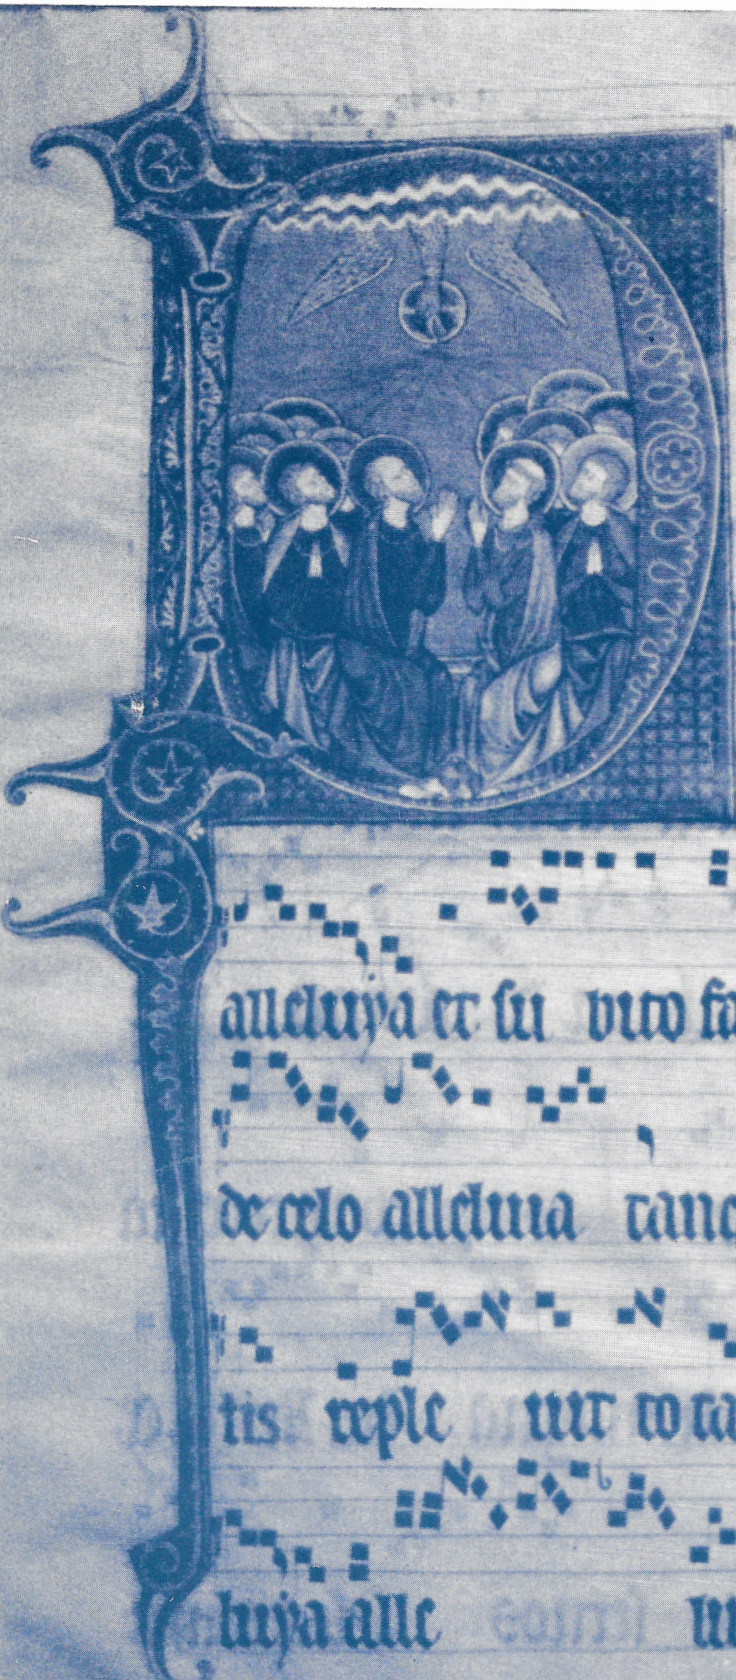 alleluya et su bito fa
de celo alleluia tanq
tis reple uit to ta
luya alle lu